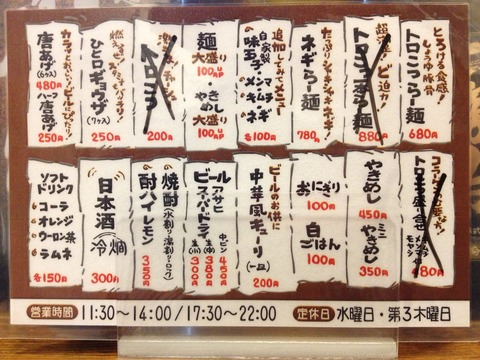 とろける食感!
しょうゆ豚骨
トロこつらー麺
680円
超濃
ド迫力!
トロこつ らー麺
880円
たっぷりシャキシャキネギ!
ネギらー麺
780円
追加してみて!メニュー
自家製
味玉・メンマ・チャーシュー
キムチ・ネギ
各100円
麺
大盛り
100円UP
やきめし
大盛り
100円UP
トロこつ
200円
ひと口ギョウザ
(7ヶス)
250円
唐あげ
(6ヶ)
480円
ハーフ
唐あげ
250円
トロこつ盛り合せ
80円
やきめし
450円
ミニ
やきめし
350円
おにぎり
100円
白ごはん
100円
ビールのお供に
中華風キューリ
(一皿)
200円
アサヒ
ビール
スーパードライ
中ビン 450円
生(中) 380円
生(小) 300円
焼酎
(水割り・湯割り・ロック)
酎ハイレモン
350円
日本酒
冷 燗
300円
ソフト
ドリンク
コーラ
オレンジ
ウーロン茶
ラムネ
各150円
営業時間 11:30〜14:00/17:30〜22:00 定休日 水曜日・第3木曜日